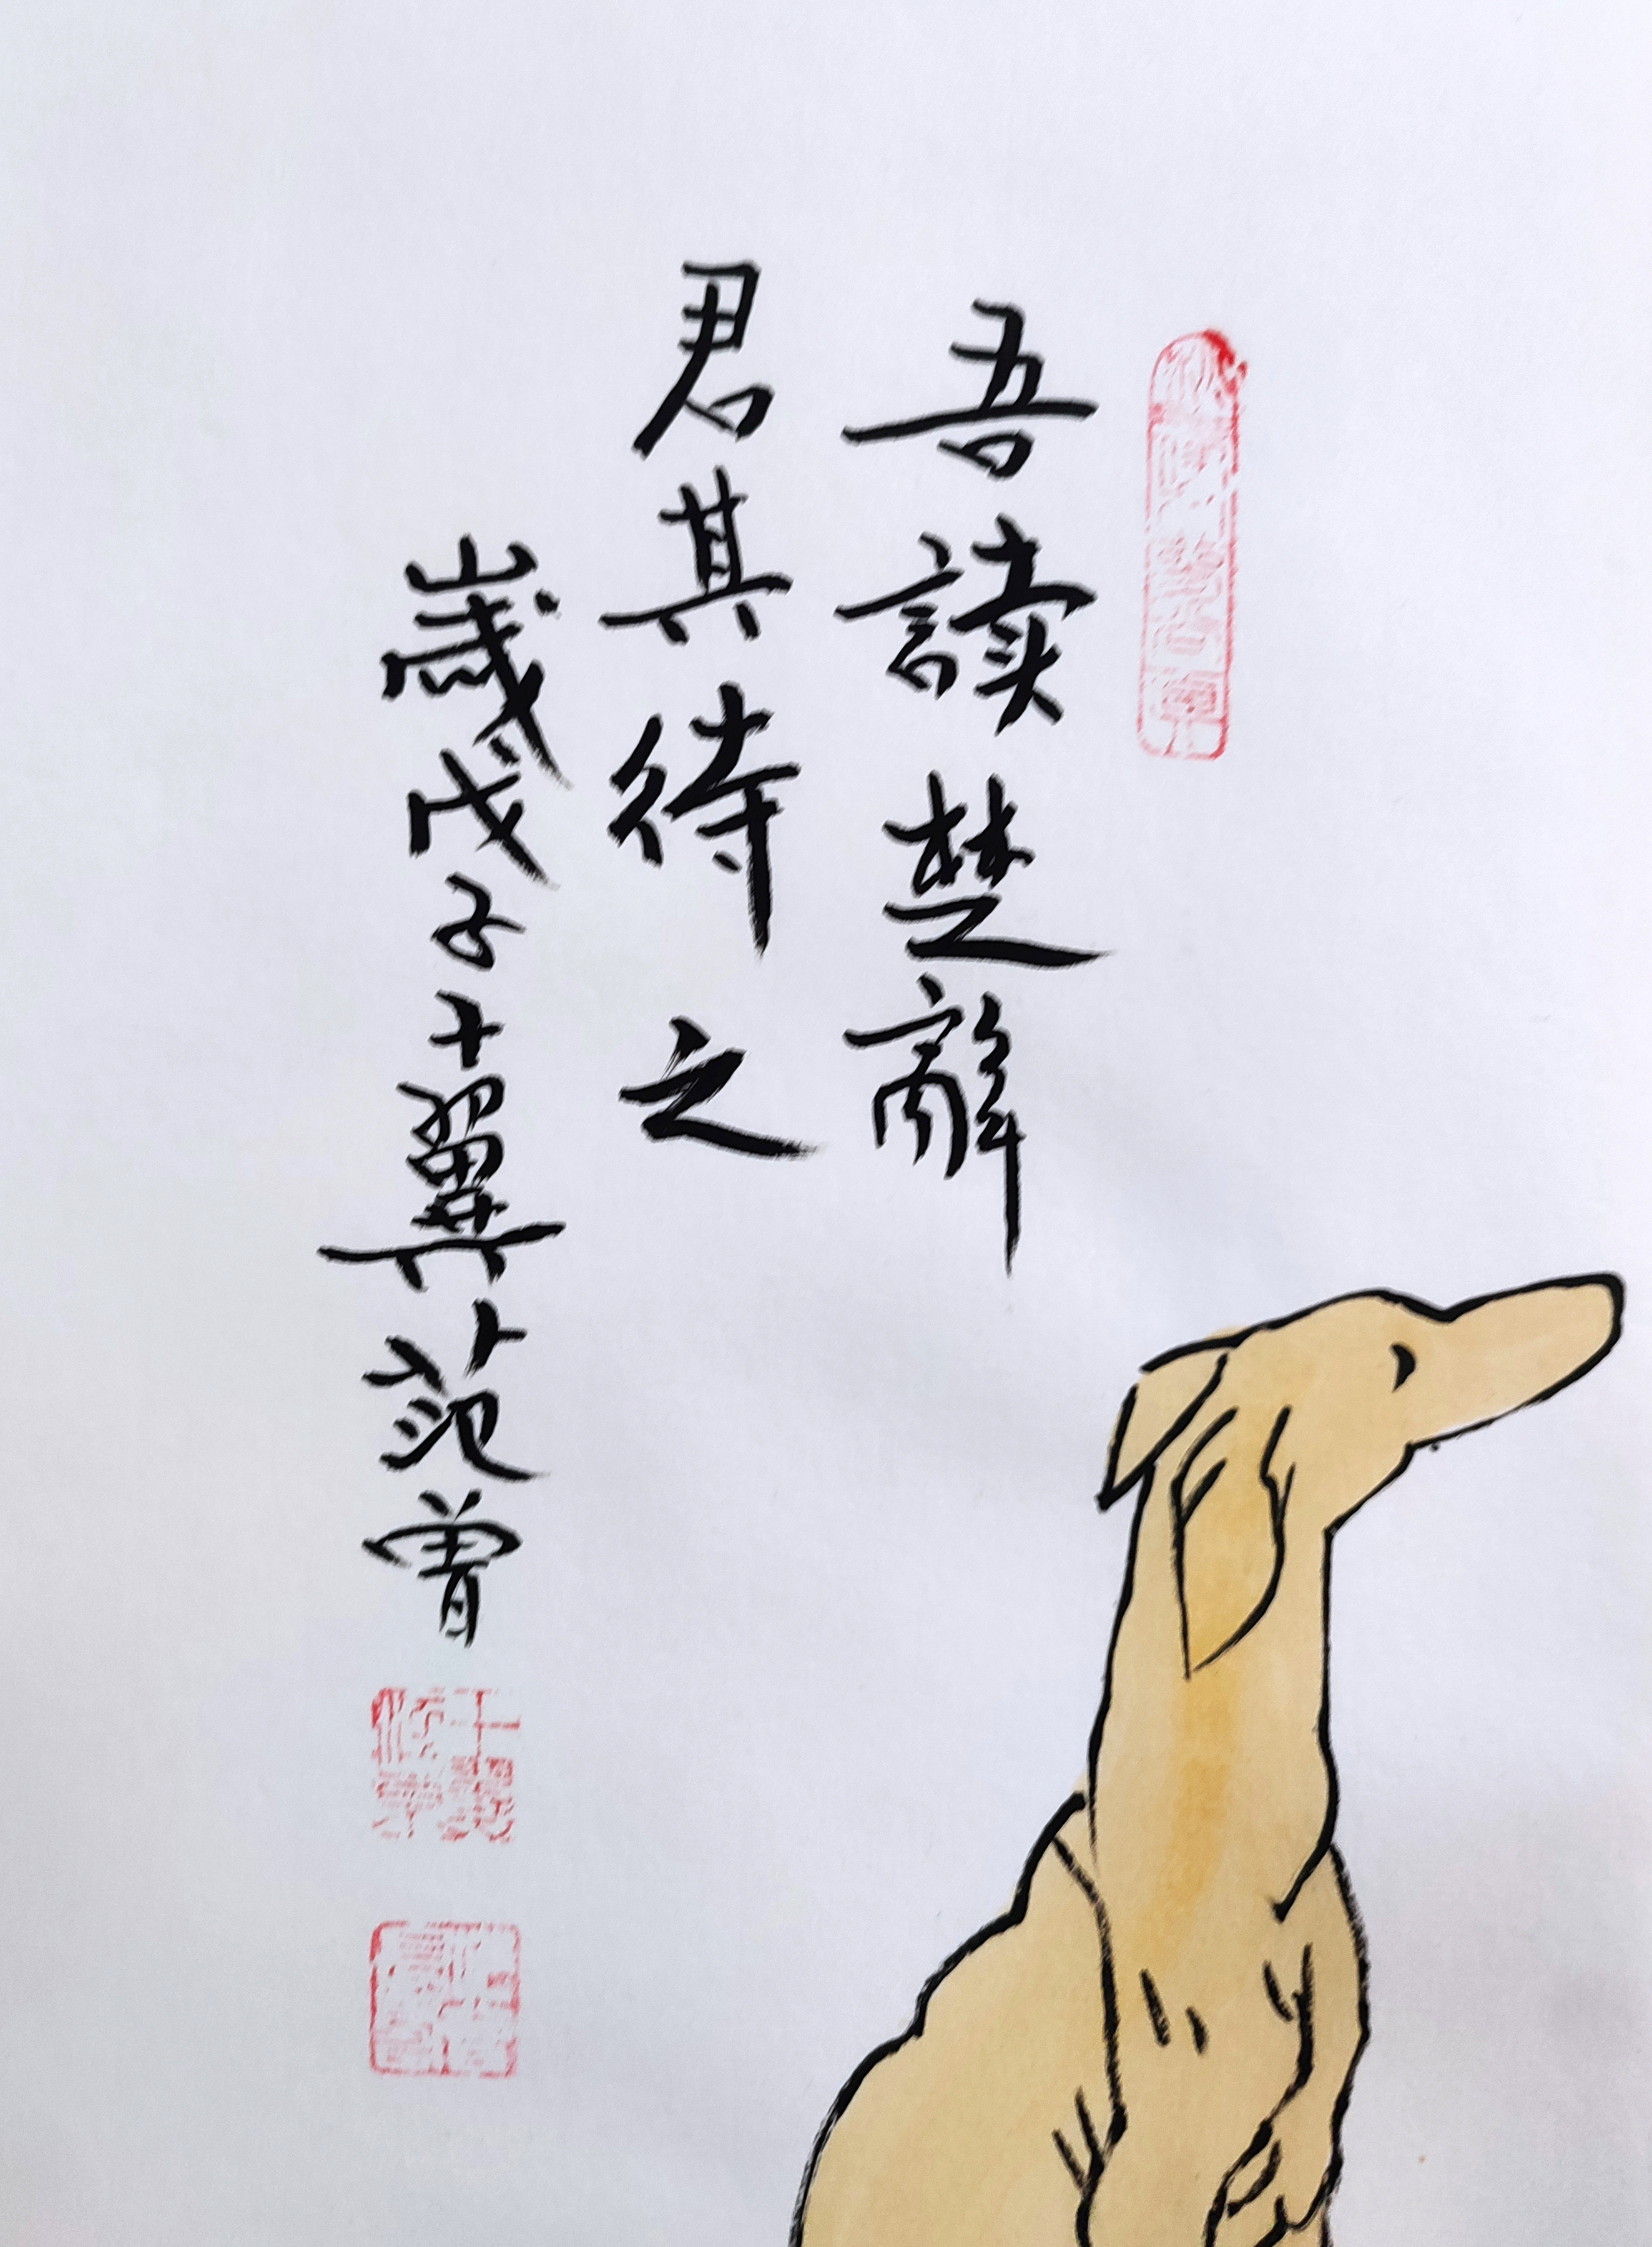 吾讀楚辭
君其待之
歲戊子十翼范曾